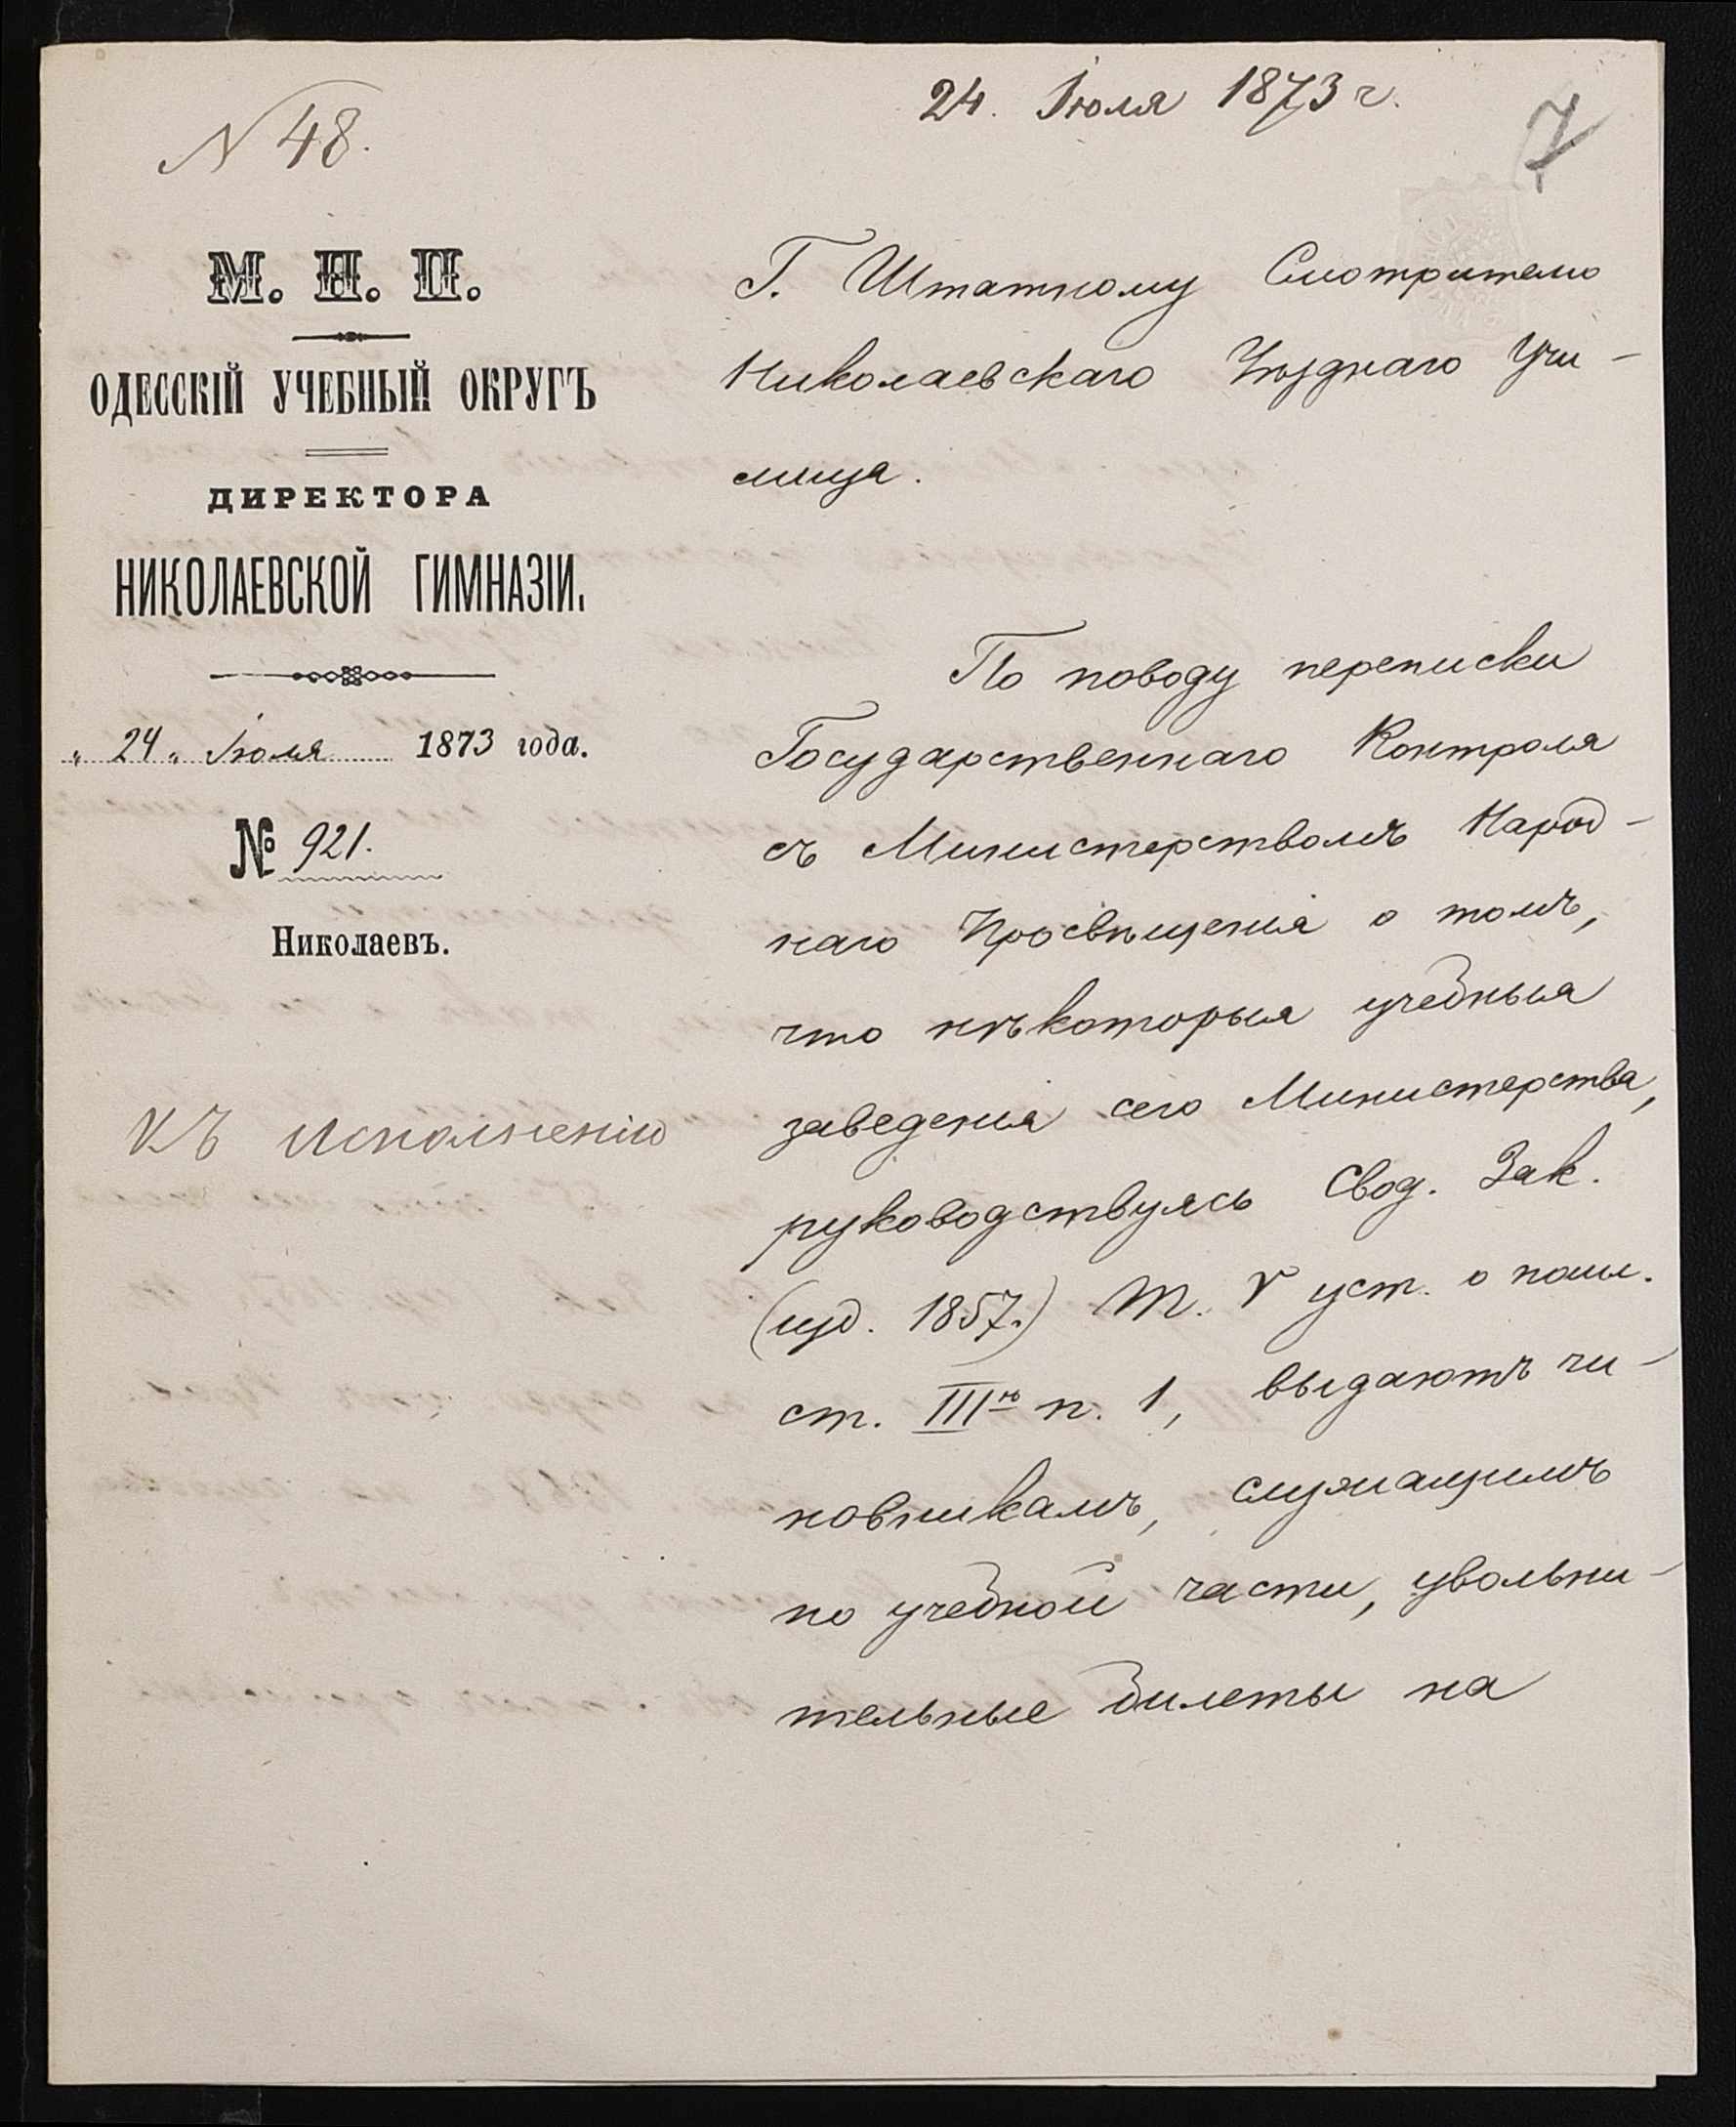 24. Іюля 1873 г.
N 48.
7
М. Н. П.
ОДЕССКІЙ УЧЕБНЫЙ ОКРУГЪ
ДИРЕКТОРА
НИКОЛАЕВСКОЙ ГИМНАЗІИ.
„ 24 „ Іюля 1873 года.
№ 921.
Николаевъ.
Къ исполненію
Г. Штатному Смотрителю
Николаевскаго Уѣзднаго Учи-
лища.
По поводу переписки
Государственнаго Контроля
съ Министерствомъ Народ-
наго Просвѣщенія о томъ,
что нѣкоторыя учебныя
заведенія сего Министерства,
руководствуясь Свод. Зак.
(изд. 1857.) Т. V уст. о пошл.
ст. п. 1, выдаютъ чи-
новникамъ, служащимъ
по учебной части, увольни-
тельные билеты на